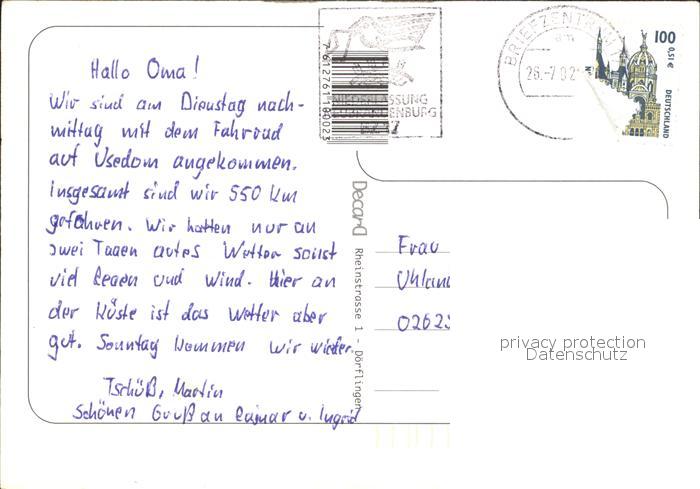 Hallo Oma!
Wir sind am Dienstag nach-
mittag mit dem Fahrrad
auf Usedom angekommen.
Insgesamt sind wir 550 km
gefahren. Wir hatten nur an
zwei Tagen gutes Wetter sonst
viel Regen und Wind. Hier an
der Küste ist das Wetter aber
gut. Sonntag kommen wir wieder.
Tschüß, Martin
Schönen Gruß an u. Ingrid
7612761180023
NIEDERLASSUNG
BRIEFZENTRUM
26.-7.02
100
0,51€
DEUTSCHLAND
Decard Rheinstrasse 1 - Dörflingen
Frau
Uhlan
0262
privacy protection
Datenschutz